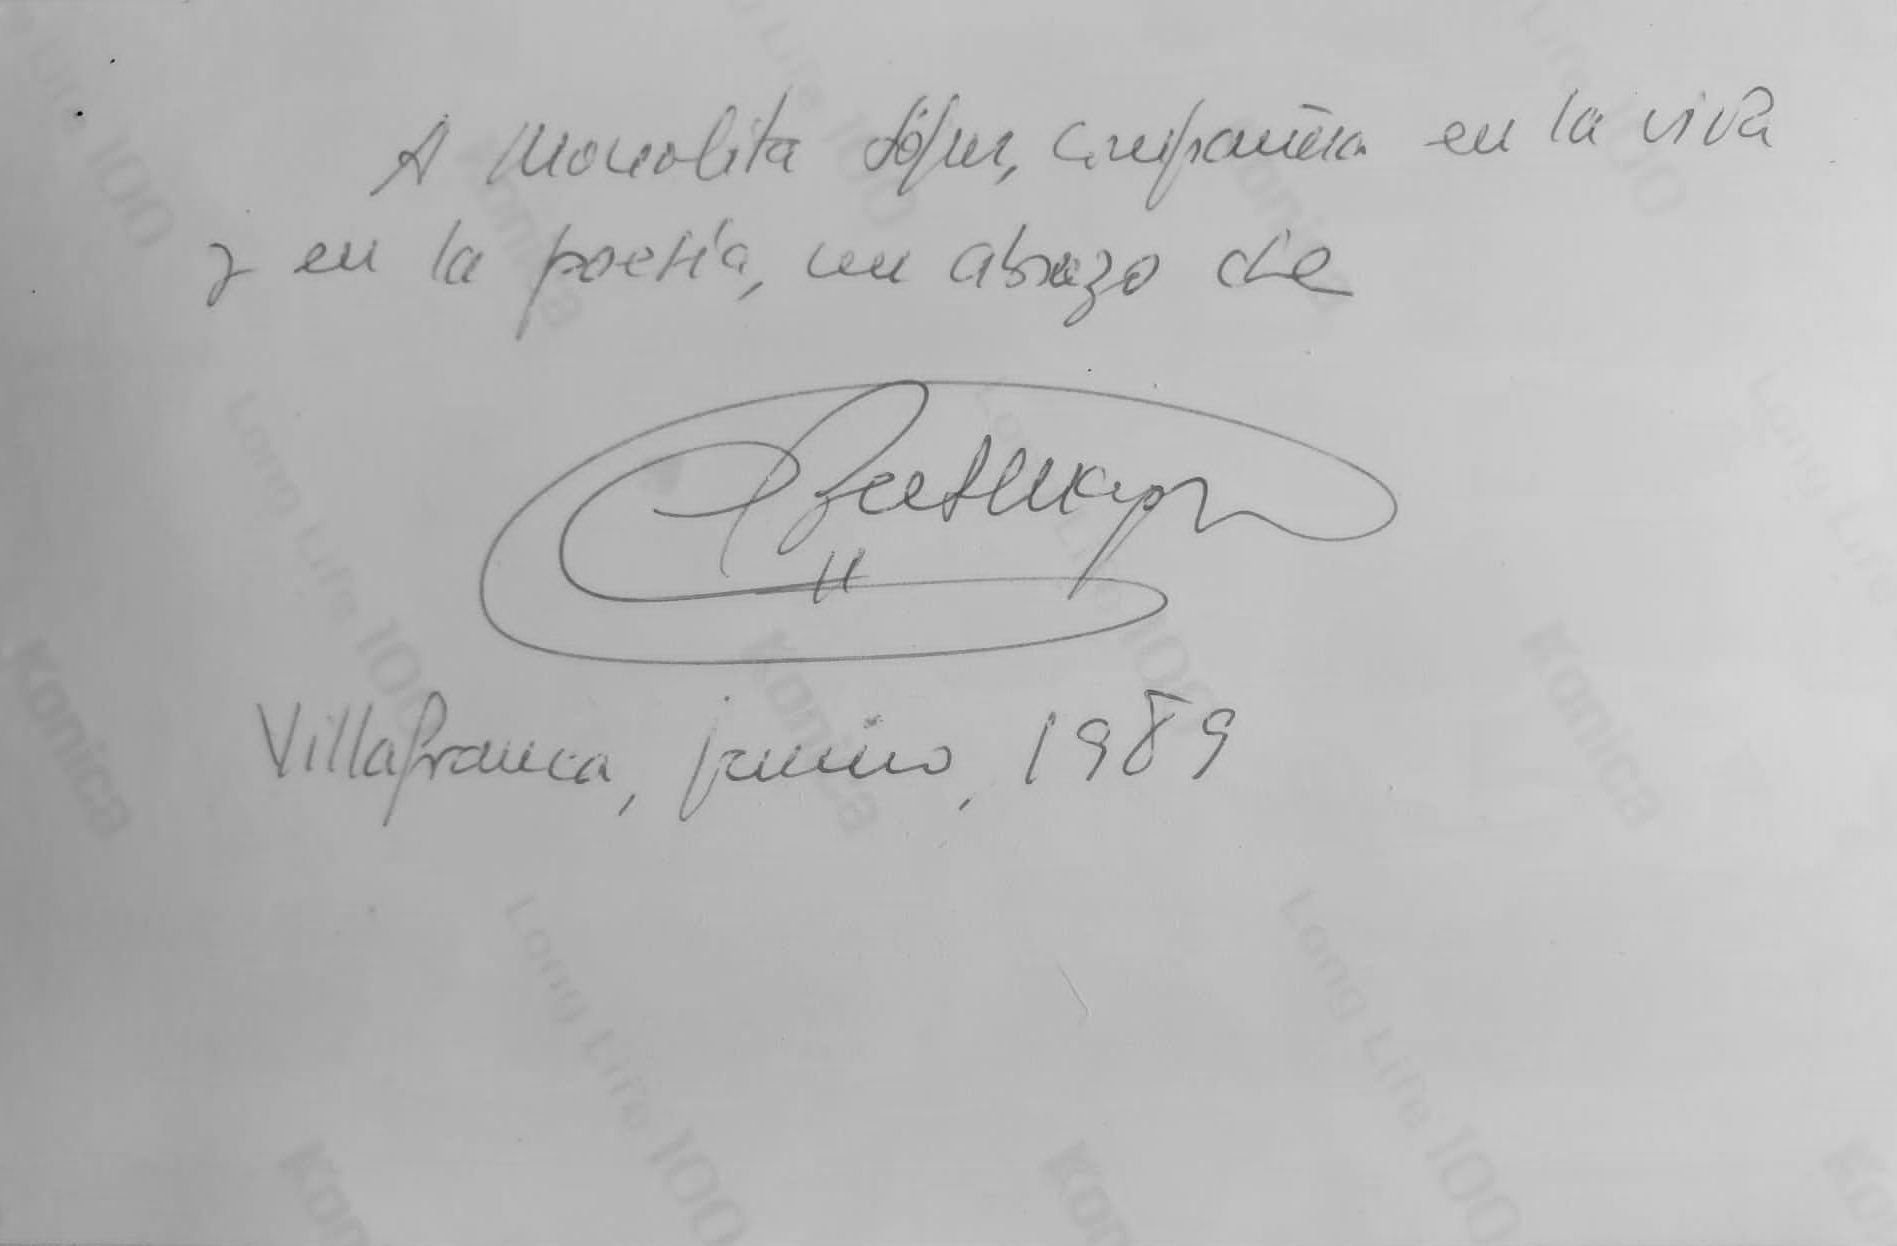 A Manolita López, compañera en la vida
y en la poesía, un abrazo de
Villafranca, junio, 1989
Konica
Long Life 100